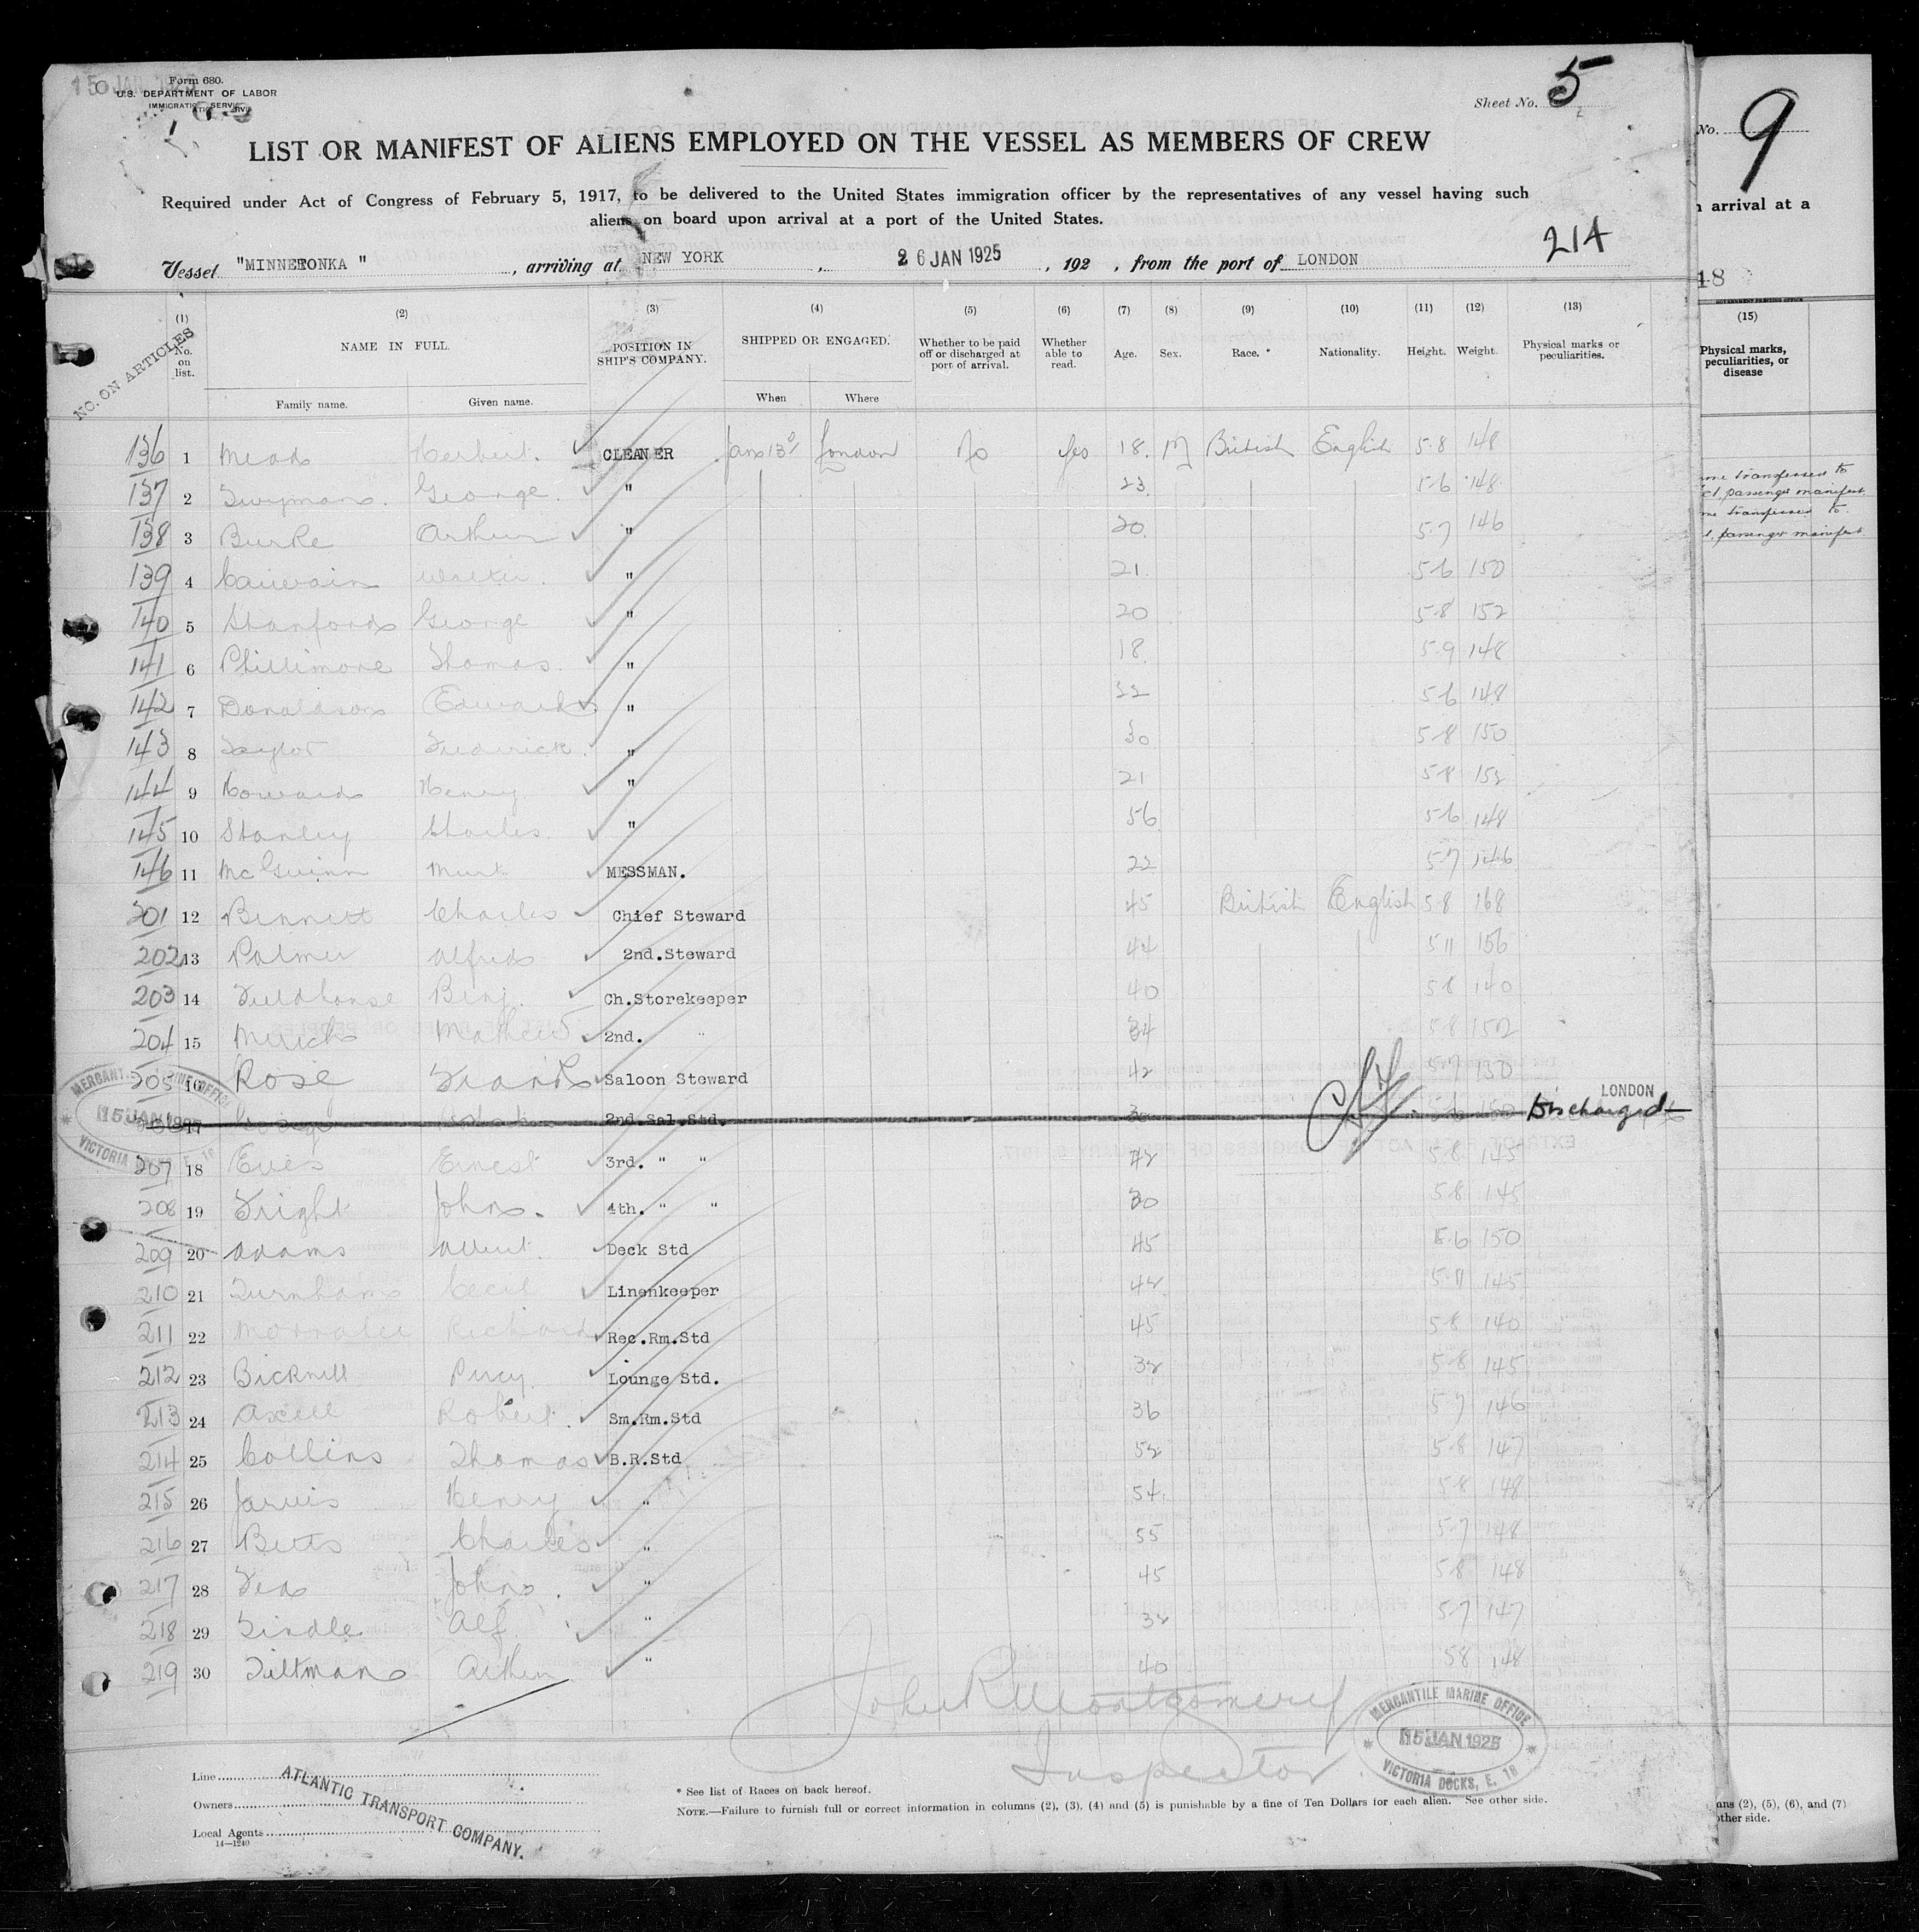 Form 680.
U.S. DEPARTMENT OF LABOR
IMMIGRATION SERVICE
Sheet No. 5
LIST OR MANIFEST OF ALIENS EMPLOYED ON THE VESSEL AS MEMBERS OF CREW
Required under Act of Congress of February 5, 1917, to be delivered to the United States immigration officer by the representatives of any vessel having such
aliens on board upon arrival at a port of the United States.
214
Vessel "MINNETONKA", arriving at NEW YORK, 26 JAN 1925, 192 , from the port of LONDON
NO. ON ARTICLES
(1) (2) (3) (4) (5) (6) (7) (8) (9) (10) (11) (12) (13)
No. on list. NAME IN FULL. POSITION IN SHIP'S COMPANY. SHIPPED OR ENGAGED. Whether to be paid off or discharged at port of arrival. Whether able to read. Age. Sex. Race.* Nationality. Height. Weight. Physical marks or peculiarities.
Family name. Given name. When Where
136 1 Mead Herbert. CLEANER Jan 13 London No Yes 18. M British English 5-8 148
137 2 Twyman George " 23 5-6 148
138 3 Burke Arthur " 20 5-7 146
139 4 Walter " 21 5-6 150
140 5 Stanford George " 20 5-8 152
141 6 Phillimore Thomas " 18 5-9 148
142 7 Donaldson Edward " 22 5-6 148
143 8 Taylor Frederick " 30 5-8 150
144 9 Howard Henry " 21 5-8 152
145 10 Stanley Charles " 56 5-6 148
146 11 McGuinn Murt MESSMAN. 22 5-7 146
201 12 Bennett Charles Chief Steward 45 British English 5-8 168
202 13 Palmer Alfred 2nd.Steward 44 5-11 156
203 14 Fieldhouse Benj. Ch.Storekeeper 40 5-8 140
204 15 Mathew 2nd. " 34 5-8 152
205 16 Rose Frank Saloon Steward 42 5-7 150
17 2nd.Sal.Std. 30 5-6 150 Discharged LONDON
207 18 Eves Ernest 3rd. " " 42 5-8 145
208 19 Fright John. 4th. " " 30 5-8 145
209 20 Adams Albert Deck Std 45 5-6 150
210 21 Turnham Cecil Linenkeeper 42 5-11 145
211 22 Morralee Richard Rec.Rm.Std 45 5-8 140
212 23 Bicknell Percy Lounge Std. 32 5-8 145
213 24 Axell Robert Sm.Rm.Std 36 5-7 146
214 25 Collins Thomas B.R.Std 52 5-8 147
215 26 Jarvis Henry " 54 5-8 148
216 27 Betts Charles " 55 5-7 148
217 28 John " 45 5-8 148
218 29 Tindle Alf. " 32 5-7 147
219 30 Tiltman Arthur " 40 5-8 148
John R Montgomery
Inspector.
MERCANTILE MARINE OFFICE
15 JAN 1925
VICTORIA DOCKS, E. 16
MERCANTILE MARINE OFFICE
15 JAN 1925
VICTORIA DOCKS, E. 16
Line
Owners
Local Agents
ATLANTIC TRANSPORT COMPANY.
14—1240
* See list of Races on back hereof.
NOTE.—Failure to furnish full or correct information in columns (2), (3), (4) and (5) is punishable by a fine of Ten Dollars for each alien. See other side.
No. 9
arrival at a
(15)
Physical marks,
peculiarities, or
disease
transferred to
passenger manifest
transferred to
passenger manifest
(2), (5), (6), and (7)
other side.